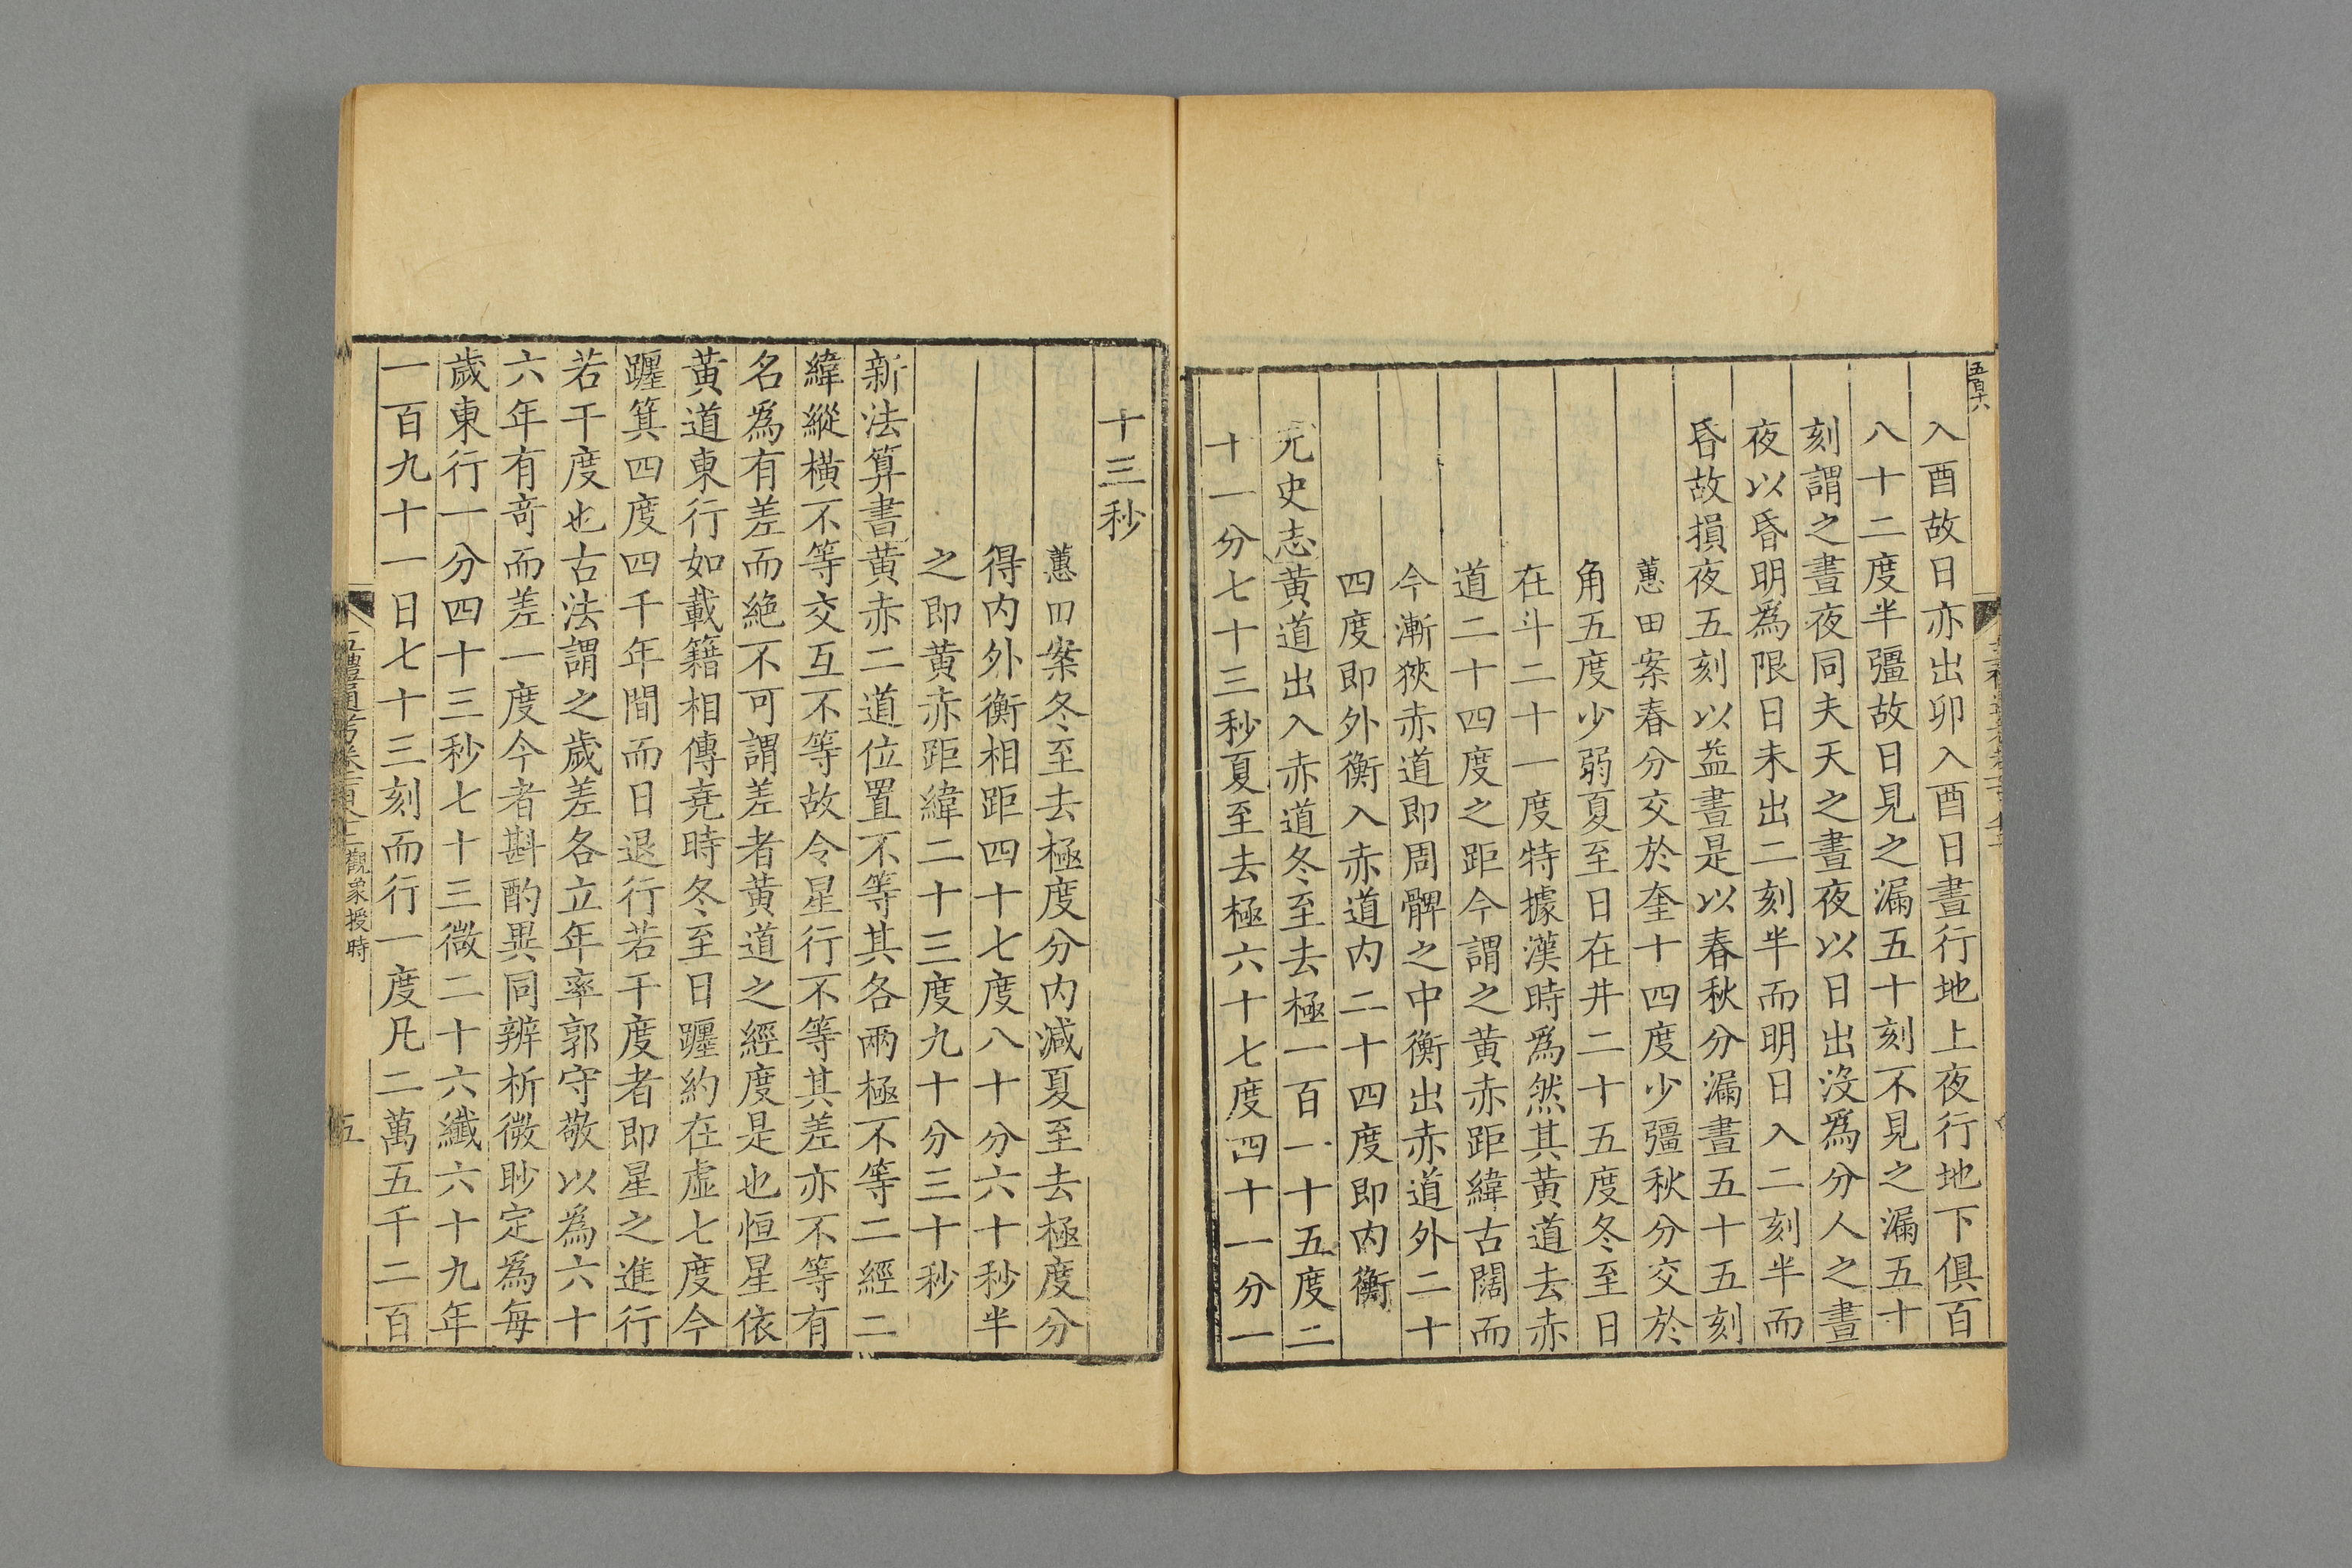 五百十六
入酉故日亦出卯入酉日晝行地上夜行地下俱百
八十二度半彊故日見之漏五十刻不見之漏五十
刻謂之晝夜同夫天之晝夜以日出沒爲分人之晝
夜以昏明爲限日未出二刻半而明日入二刻半而
昏故損夜五刻以益晝是以春秋分漏晝五十五刻
蕙田案春分交於奎十四度少彊秋分交於
角五度少弱夏至日在井二十五度冬至日
在斗二十一度特據漢時爲然其黃道去赤
道二十四度之距今謂之黃赤距緯古闊而
今漸狹赤道即周髀之中衡出赤道外二十
四度即外衡入赤道内二十四度即内衡
元史志黃道出入赤道冬至去極一百一十五度二
十一分七十三秒夏至去極六十七度四十一分一
十三秒
蕙田案冬至去極度分内減夏至去極度分
得内外衡相距四十七度八十分六十秒半
之即黃赤距緯二十三度九十分三十秒
新法算書黃赤二道位置不等其各兩極不等二經二
緯縱橫不等交互不等故令星行不等其差亦不等有
名爲有差而絶不可謂差者黃道之經度是也恒星依
黃道東行如載籍相傳堯時冬至日躔約在虛七度今
躔箕四度四千年間而日退行若干度者即星之進行
若干度也古法謂之歲差各立年率郭守敬以爲六十
六年有奇而差一度今者斟酌異同辨析微眇定爲每
歲東行一分四十三秒七十三微二十六纖六十九年
一百九十一日七十三刻而行一度凡二萬五千二百
五禮通考卷一百八十三 觀象授時 五